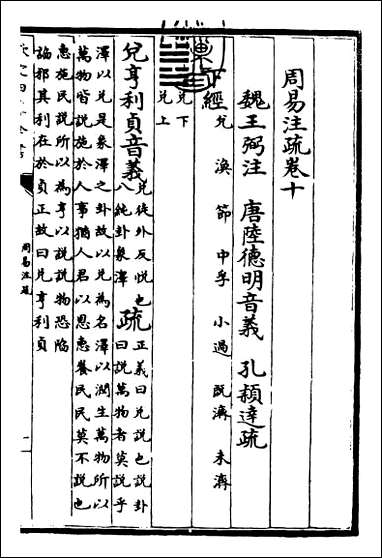 周易注疏卷十
魏王弼注 唐陸德明音義 孔穎達疏
下經 兌 渙 節 中孚 小過 既濟 未濟
兌下
兌上
兌亨利貞音義 兌徒外反悅也 疏 正義曰兌說也說卦
八純卦象澤 曰說萬物者莫說乎
澤以兌是象澤之卦故以兌為名澤以潤生萬物所以
萬物皆說施於人事猶人君以恩惠養民民莫不說也
惠施民說所以為亨以說說物恐陷
諂邪其利在於貞正故曰兌亨利貞
周易注疏